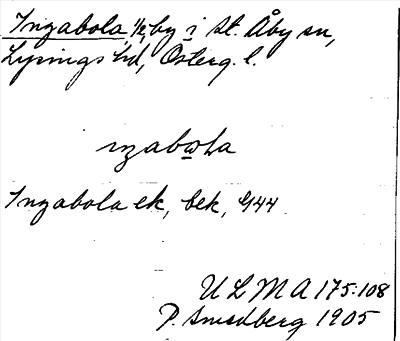 Ingabola, by i St. Åby sn,
Lysings hd, Österg. l.
Ingabola ek, bek, G44
U L M A 175:108
P. Smedberg 1905